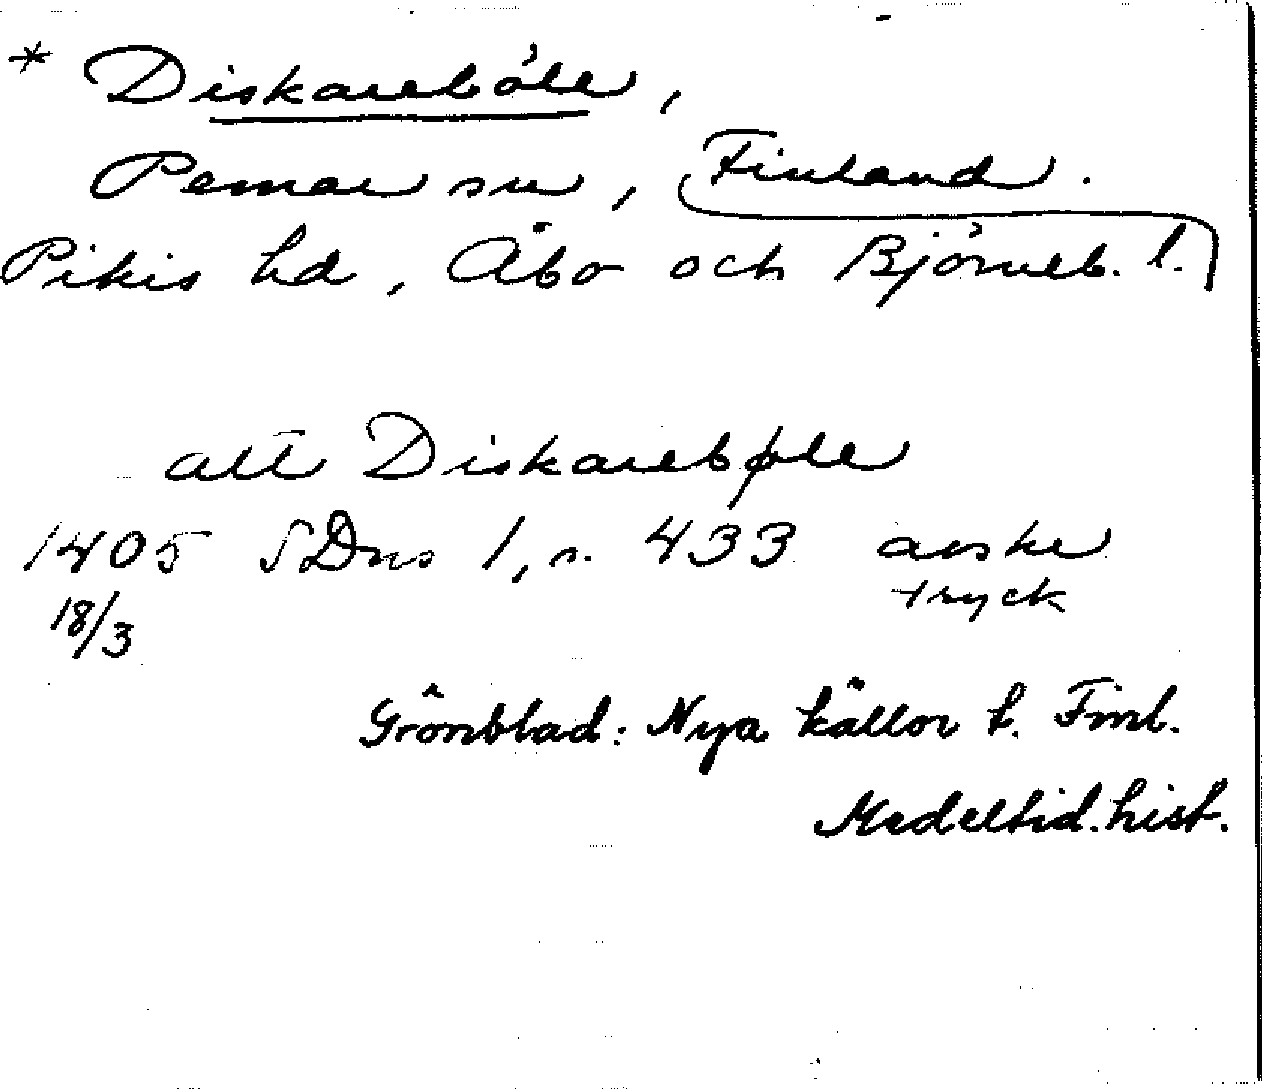 * Diskareböle,
Pemar sn, Finland.
Pikis hd, Åbo och Björneb. l.
att Diskarebøle
1405 SDns 1, s. 433 avskr
tryck
18/3
Grönblad: Nya källor t. Finl.
Medeltid. hist.